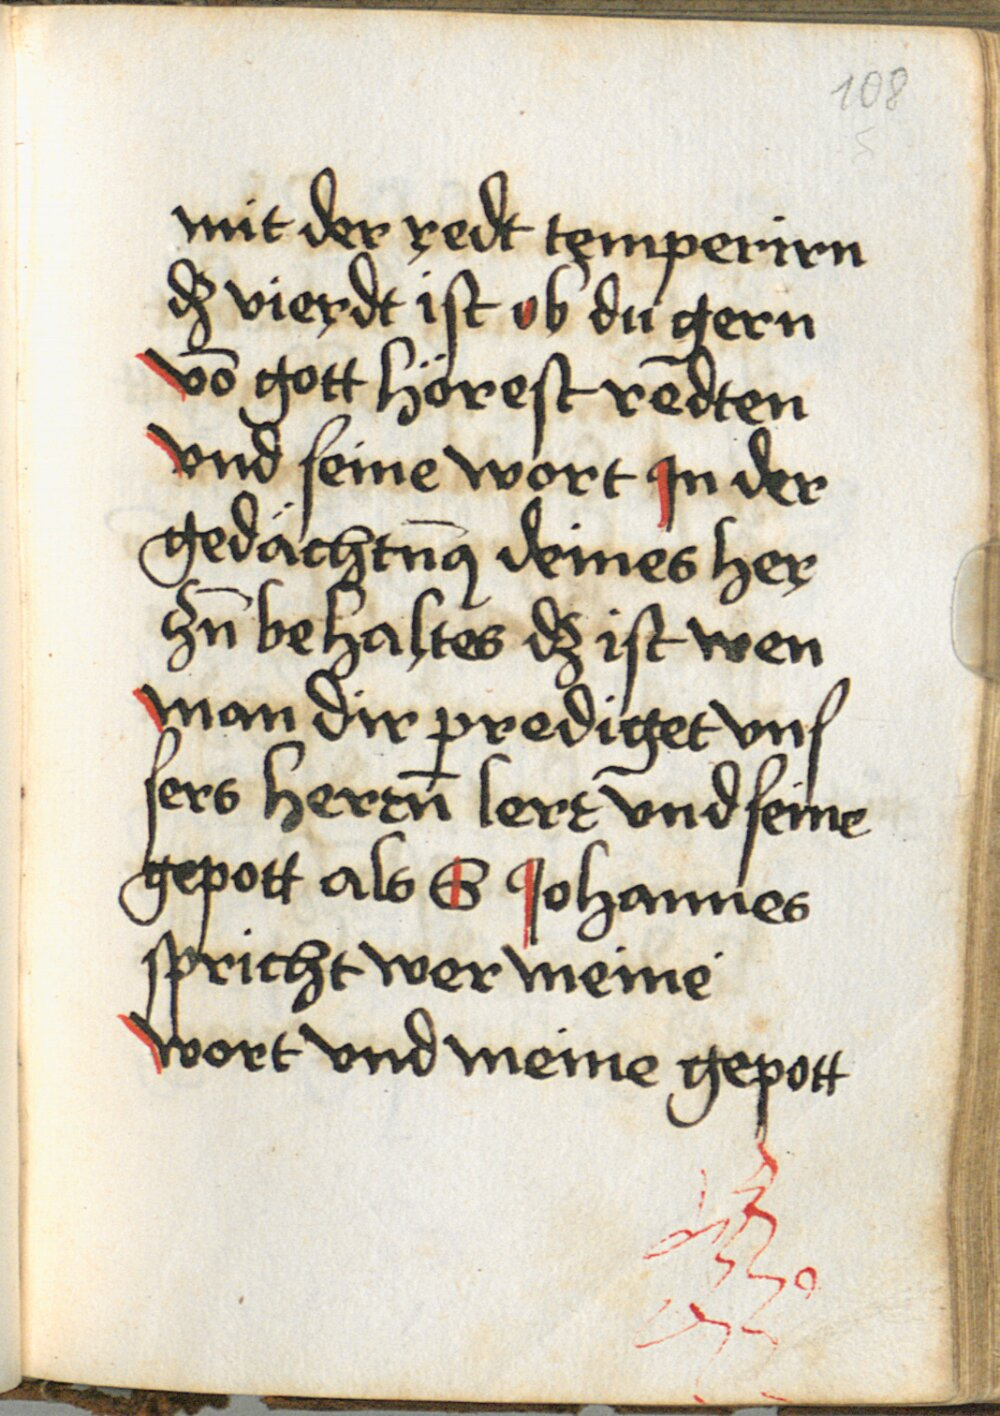 108
mit der redt temperirn
dz vierdt ist ob du gern
vō gott hörest rēdten
vnd seine wort In der
gedächtnꝰ deines her
zn̄ behaltes dz ist wen
man dir prediget vns
sers herrn̄ lere vnd seine
gepott als S Johannes
spricht wer meine
wort vnd meine gepott